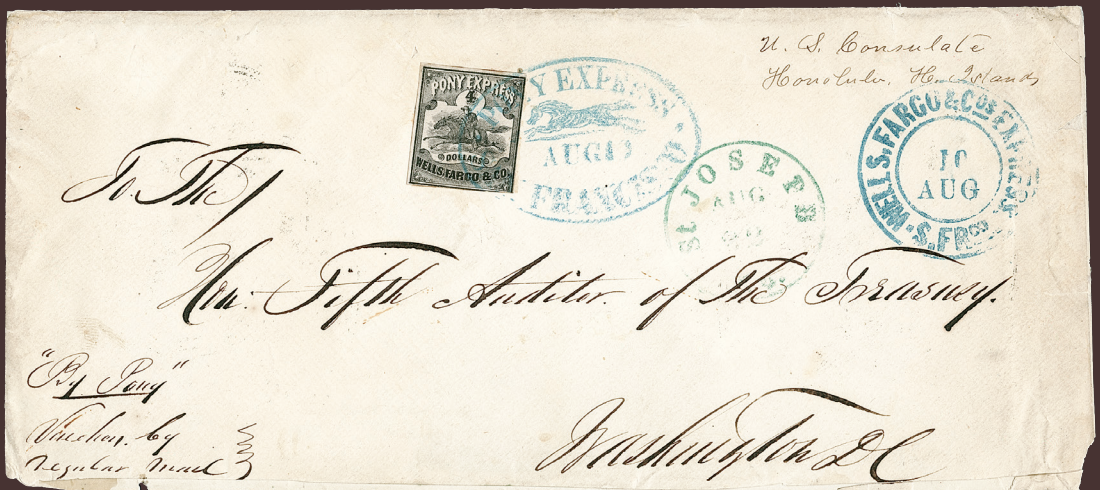 U. S. Consulate
Honolulu, H. Islands
PONY EXPRESS
4
DOLLARS
WELLS, FARGO & CO.
Y EXPRESS
AUG
FRANCISCO
St JOSEPH
AUG
WELLS, FARGO & Cos EXPRESS
10
AUG
S. FRco
To The
Hon: Fifth Auditor of The Treasury.
"By Pony"
by
regular mail
Washington DC